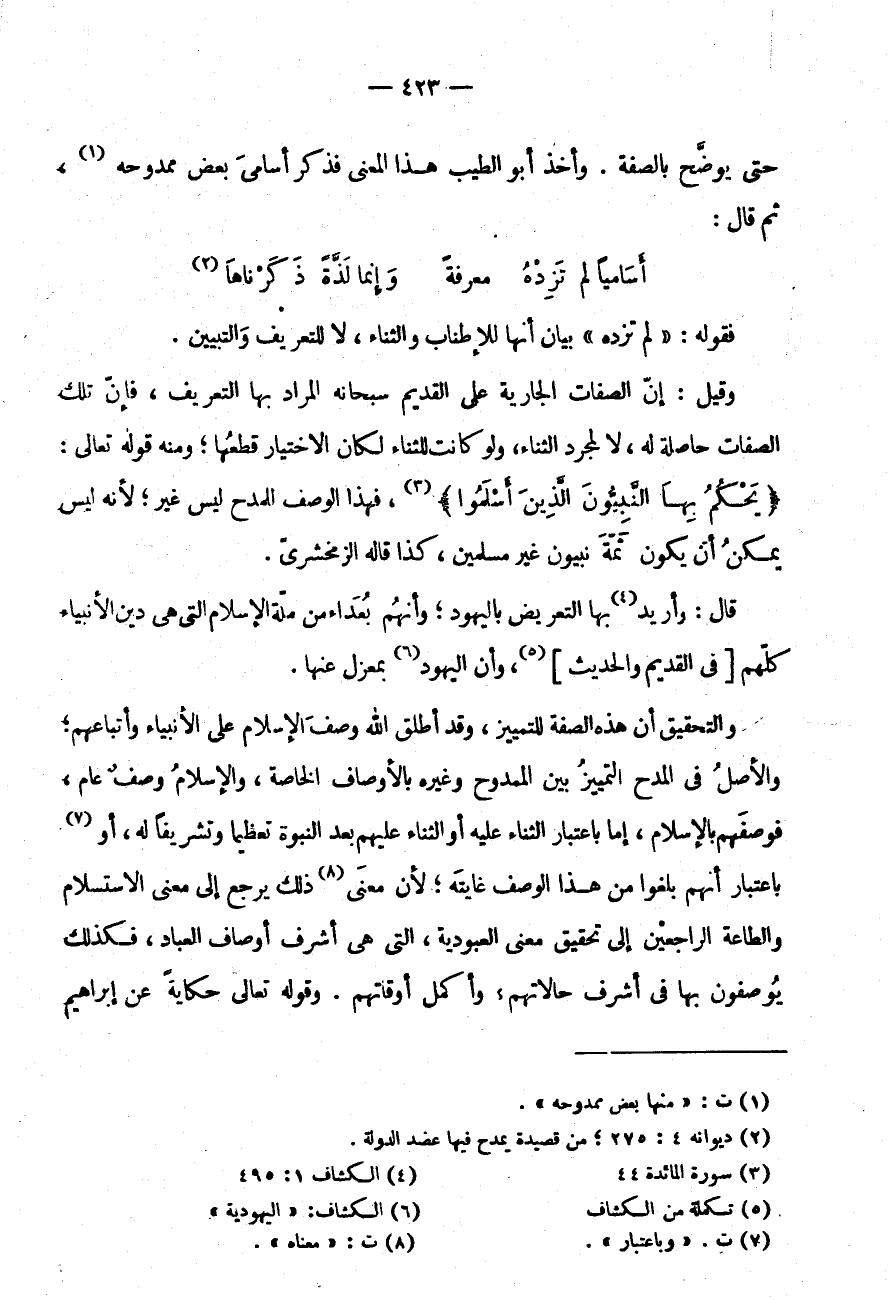 — ٤٢٣ —
حتى يوضَّح بالصفة . وأخذ أبو الطيب هـذا المعنى فذكر أسامىَ بعض ممدوحه (١) ،
ثم قال :
أَسَامياً لم تَزِدْهُ معرفةً وَإنما لَذَّةً ذَكَرْناهاَ (٢)
فقوله : « لم تزده » بيان أنها للإطناب والثناء ، لا للتعريف وَالتبيين .
وقيل : إنّ الصفات الجارية على القديم سبحانه المراد بها التعريف ، فإنّ تلك
الصفات حاصلة له ، لا لمجرد الثناء، ولو كانت للثناء لكان الاختيار قطعُها ؛ ومنه قوله تعالى :
﴿ يَحْكُمُ بِهـاَ النَّبِيُّونَ الَّذِينَ أَسْلَمُوا ﴾ (٣) ، فهذا الوصف للمدح ليس غير ؛ لأنه ليس
يمكنُ أن يكون ثَمّةَ نبيون غير مسلمين ، كذا قاله الزمخشرىّ .
قال : وأريد (٤) بها التعريض باليهود ؛ وأنهُم بُعَداء من ملّة الإسلام التى هى دين الأنبياء
كلّهم [ فى القديم والحديث ] (٥) ، وأن اليهود (٦) بمعزل عنها .
والتحقيق أن هذه الصفة للتمييز ، وقد أطلق الله وصف الإسلام على الأنبياء وأتباعهم؛
والأصلُ فى المدح التمييزُ بين الممدوح وغيره بالأوصاف الخاصة ، والإسلامُ وصفٌ عام ،
فوصفَهم بالإسلام ، إما باعتبار الثناء عليه أو الثناء عليهم بعد النبوة تعظيما وتشريفاً له ، أو (٧)
باعتبار أنهم بلغوا من هـذا الوصف غايتَه ؛ لأن معنَى (٨) ذلك يرجع إلى معنى الاستسلام
والطاعة الراجعيْن إلى تحقيق معنى العبودية ، التى هى أشرف أوصاف العباد ، فكذلك
يُوصفون بها فى أشرف حالاتهم؛ وأكمل أوقاتهم . وقوله تعالى حكايةً عن إبراهيم
(١) ت : « منها بعض ممدوحه » .
(٢) ديوانه ٤ : ٢٧٥ ؛ من قصيدة يمدح فيها عضد الدولة .
(٣) سورة المائدة ٤٤ (٤) الكشاف ١ : ٤٩٥
(٥) تكملة من الكشاف (٦) الكشاف: « اليهودية »
(٧) ت . « وباعتبار » . (٨) ت : « معناه » .